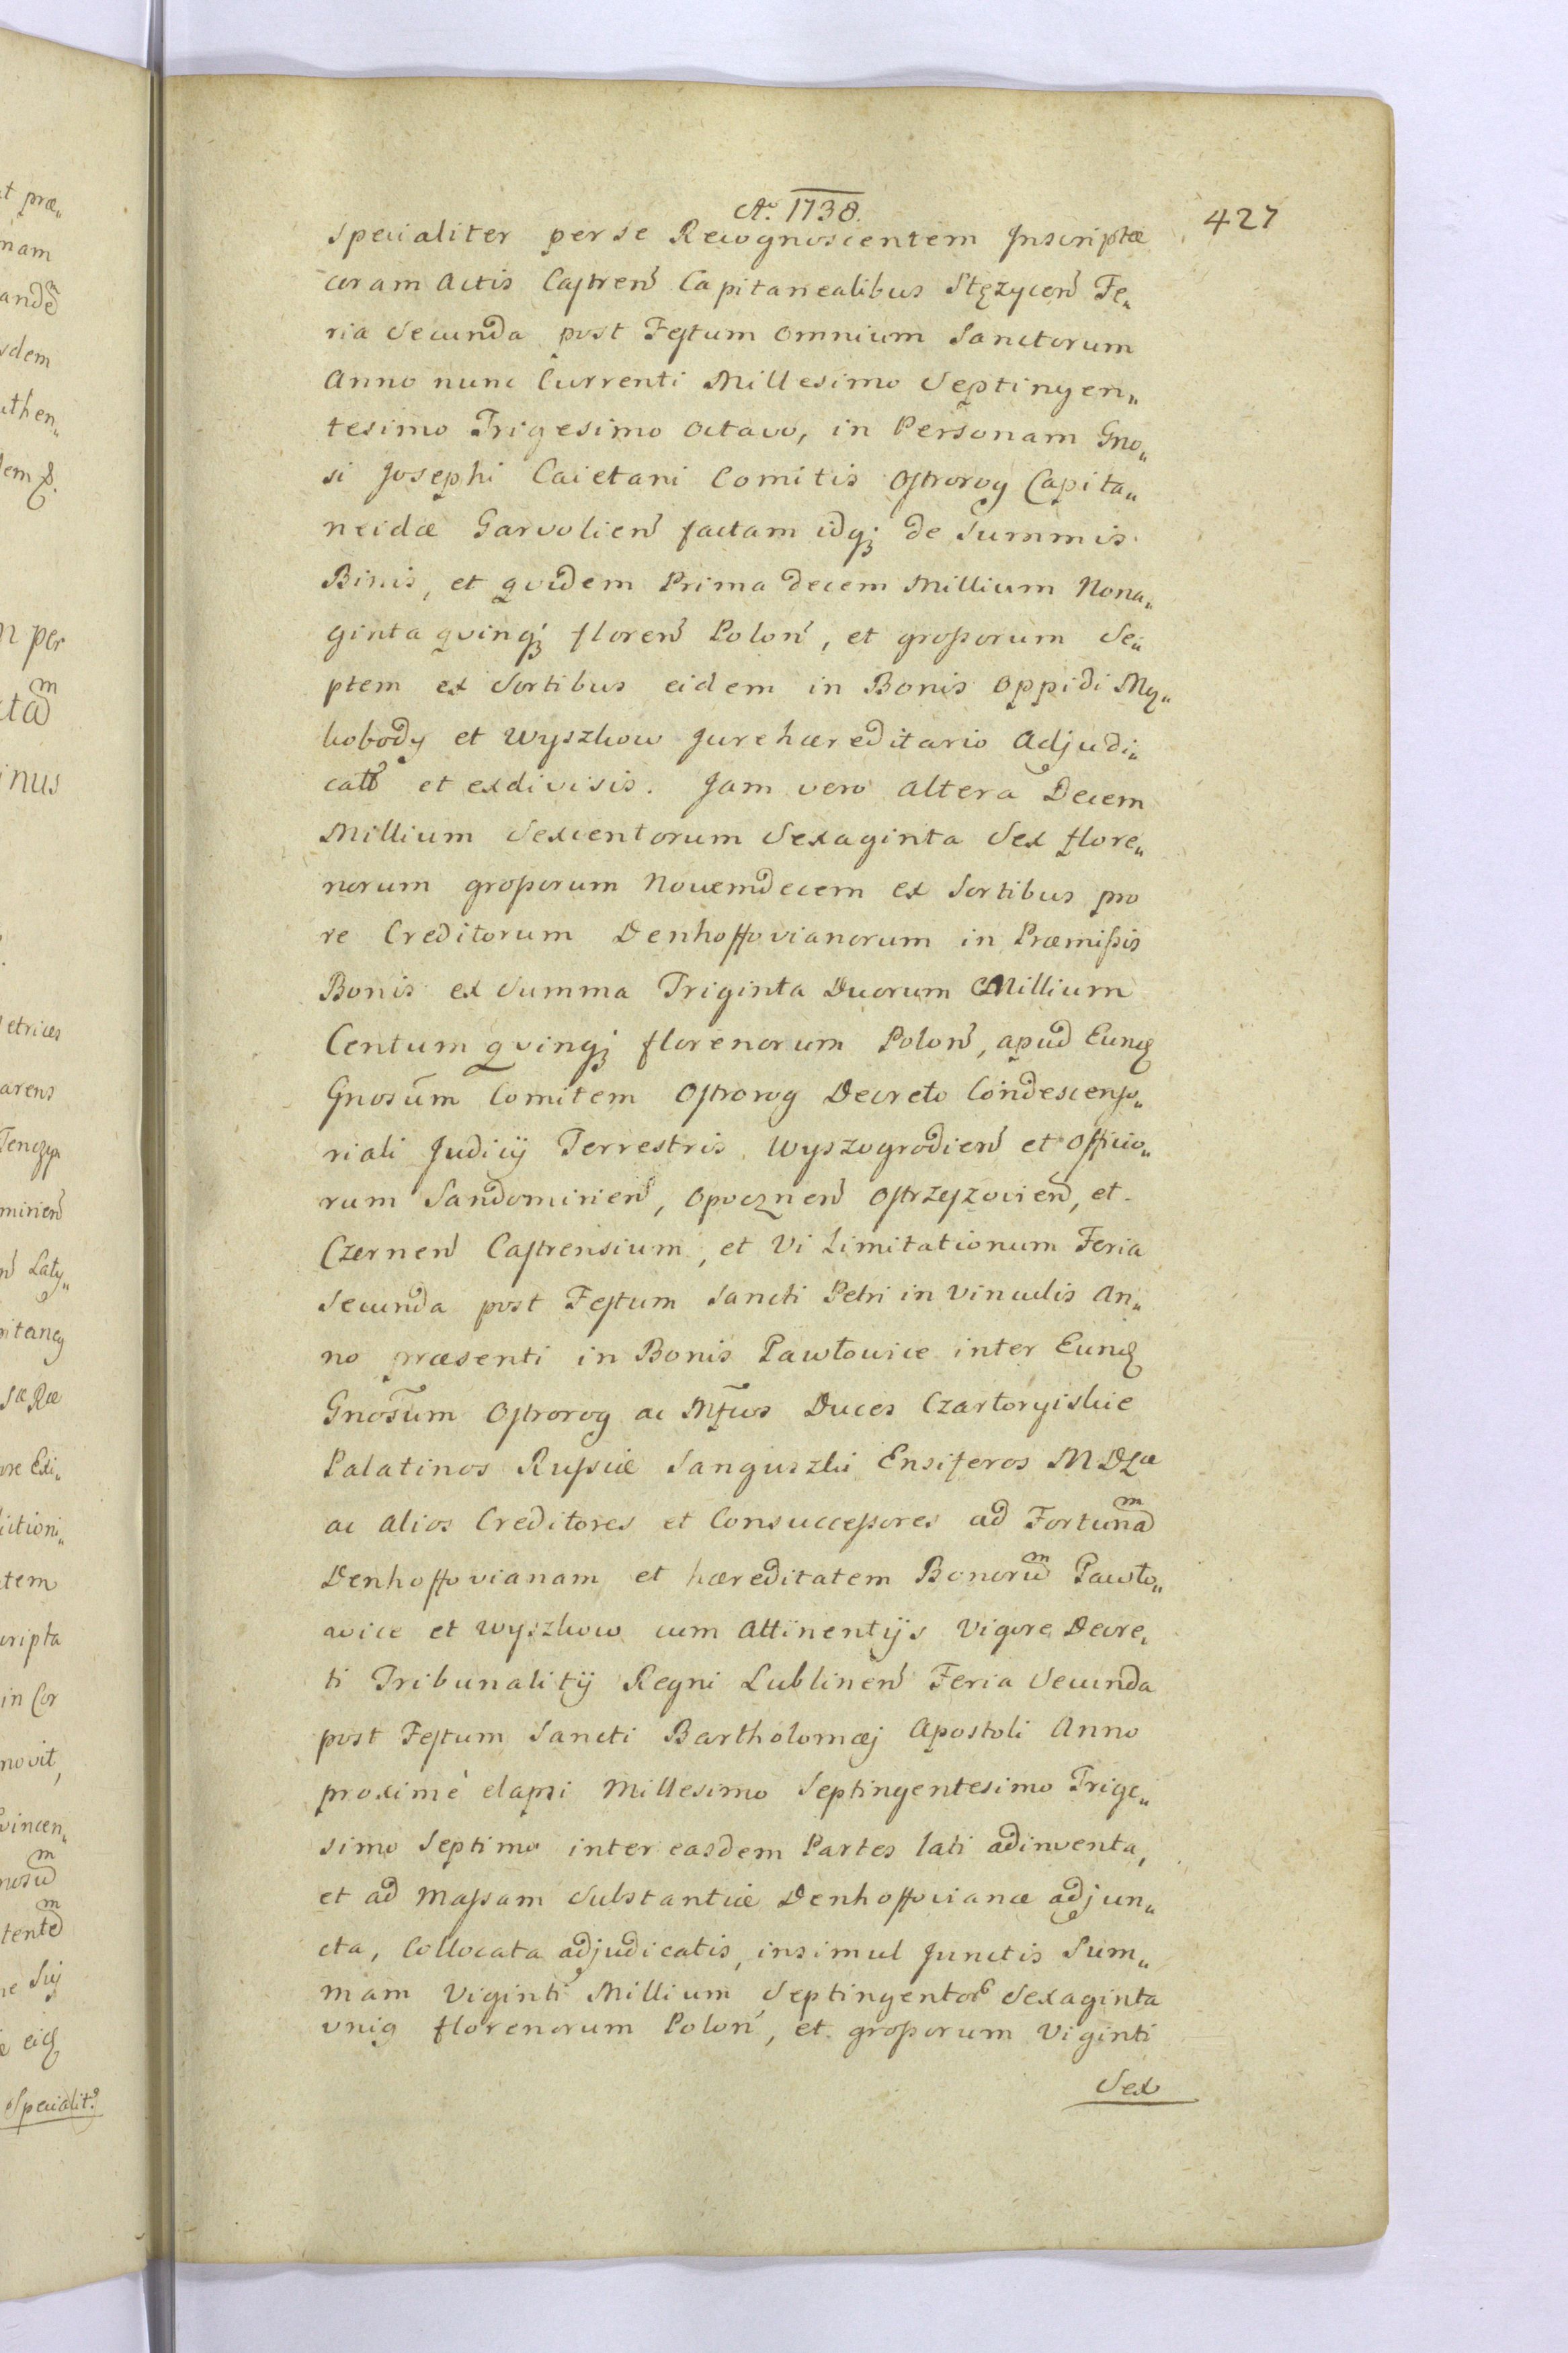 Aº. 1738.
427
specialiter per se Recognoscentem Inscriptæ
coram Actis Castreñ Capitanealibus Stężyceñ Fe„
ria Secunda post Festum Omnium Sanctorum
Anno nunc Currenti Millesimo Septingen„
tesimo Trigesimo Octavo, in Personam Gno„
si Josephi Caietani Comitis Ostrorog Capita„
neidæ Garvolieñ factam idq; de Summis
Binis, et qvidem Prima decem Millium Nona„
ginta qvinq; floreñ Poloñ, et grossorum Se„
ptem ex Sortibus eidem in Bonis Oppidi My„
kobody et Wyszkow Jure hæreditario Adjudi„
catis et exdivisis. Jam vero altera Decem
Millium Sexcentorum Sexaginta Sex flore„
norum grossorum Novemdecem ex Sortibus pro
re Creditorum Denhoffovianorum in Præmissis
Bonis ex Summa Triginta Duorum Millium
Centum qvinq; florenorum Poloñ, apud Eund
Gnosum Comitem Ostrorog Decreto Condescenso„
riali Judicij Terrestris Wyszogrodieñ et Officio„
rum Sandomirieñ, Opoczneñ Ostrzeszovieñ, et
Czerneñ Castrensium, et Vi Limitationum Feria
Secunda post Festum Sancti Petri in Vinculis An„
no præsenti in Bonis Pawłowice inter Eund
Gnosum Ostrorog ac Mfcos Duces Czartoryiskie
Palatinos Russiæ Sanguszki Ensiferos M D Læ
ac Alios Creditores et Consuccessores ad Fortunam
Denhoffovianam et hæreditatem Bonorum Pawło„
wice et Wyszkow cum Attinentijs Vigore Decre„
ti Tribunalitij Regni Lublineñ Feria Secunda
post Festum Sancti Bartholomæj Apostoli Anno
proximè elapsi Millesimo Septingentesimo Trige„
simo Septimo inter easdem Partes lati adinventa,
et ad Massam Substantiæ Denhoffovianæ adjun„
cta, Collocata adjudicatis, insimul Junctis Sum„
mam Viginti Millium Septingentor Sexaginta
unig florenorum Poloñ, et grossorum Viginti
Sex
t præ„
nam
andem
sdem
uthen„
n per
ctam
inus
etrices
arens
Tenczyn
mirieñ
ñ Laty„
pitaneg
ore Exi„
ictioni„
tem
cripta
in Cor
novit,
Vincen„
nosum
tentem
Sij
eid
Specialit.